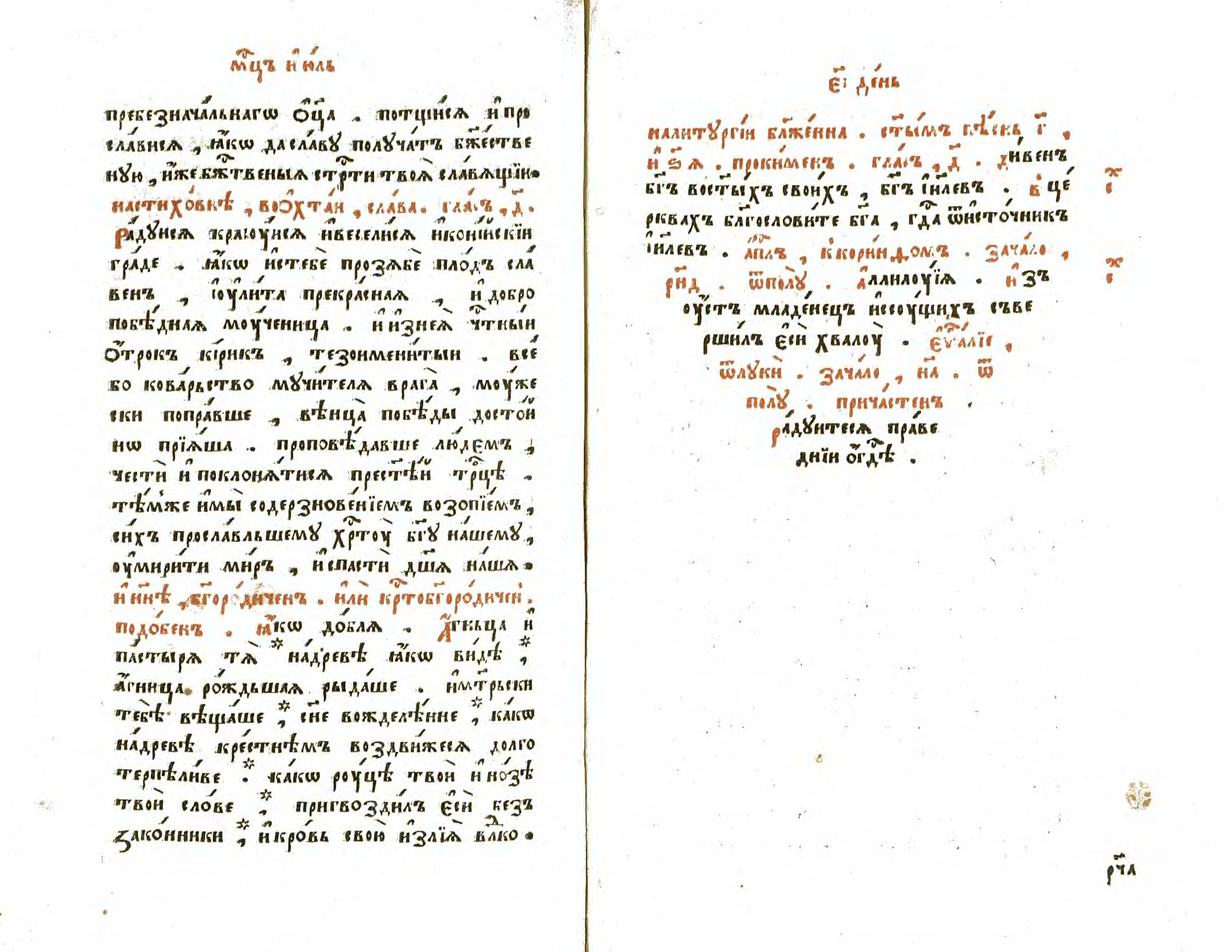 мⷭ҇цъ и҆ ю҆ль
пребезнача́льнагѡ ѻ҆ц҃а . потщи́сѧ и҆про
сла́висѧ , ꙗ҆́кѡ даславꙋ получа́тъ бж҃естве
ную , и҆́же бжⷭ҇твеныѧ стрⷭ҇ти твоѧ̀ сла́вѧщїи .
настихо́внѣ , воѻ҆хта́и , сла́ва . гла́съ , д҃ .
ра́дуисѧ красꙋ́исѧ ивесели́сѧ и҆кони́искїи
гра́де . ꙗ҆́кѡ и҆стебѐ прозѧбѐ пло́дъ сла́
венъ , і҆оули́та прекра́снаѧ , и҆ добро
побѣ́днаѧ моу́ченица . и҆ и҆знеѧ̀ чⷭ҇тныи
ѻ҆́трокъ ки́рикъ , тезоимени́тыи . всѐ
бо кова́рьство мучи́телѧ врага̀ , моу́же
ски попра́вше , вѣнца̀ побѣ́ды досто́и
нѡ прїѧ́ша . проповѣ́давше лю́демъ ,
че́сти и҆поклонѧ́тисѧ прест҃ѣ́й трⷪ҇цѣ .
тѣ́мже и҆мы̀ содерзнове́нїемъ возопїе́мъ ,
сихъ просла́вльшему хрⷭ҇тоу̀ бг҃у на́шему ,
оу҆мири́ти ми́ръ , и҆спастѝ дш҃ѧ на́шѧ .
и҆ нн҃ѣ , бг҃оро́диченъ . и҆лѝ крⷭ҇тобг҃оро́диченъ .
подо́бенъ . ꙗ҆́кѡ до́блѧ . А҆́гньца и҆
па́стырѧ тѧ̀ * на́древѣ ꙗ҆́кѡ ви́дѣ , *
а҆́гница ро́ждьшаѧ рыда́ше . и҆мт҃рьски
тебѣ̀ вѣща́ше , * сн҃е вожделѣ́нне , * ка́кѡ
на́древѣ кре́стнѣмъ воздви́жесѧ долго
терпѣли́ве . * ка́кѡ роу́цѣ твоѝ и҆но́зѣ
твоѝ сло́ве * пригвозди́лъ є҆сѝ без
зако́нники , * и҆кро́вь свою̀ и҆злїѧ̀ влⷣко .
є҃і де́нь
налитꙋргі́и блаже́нна . ст҃ы́мъ пѣ́снь г҃ ,
и҆ ѕ҃ѧ . проки́менъ . гла́съ , д҃ . ди́венъ
бг҃ъ востыхъ свои́хъ , бг҃ъ і҆и҃левъ . в це́
рквахъ благослови́те бг҃а , гдⷭ҇а ѿи҆сто́чникъ
і҆и҃левъ . а҆пⷭ҇лъ , ккори́нѳомъ . зача́ло ,
рн҃д . ѿполꙋ̀ . аллилоу́їѧ . и҆зъ
оу҆́стъ младе́нецъ и҆ссоу́щихъ съве
рши́лъ є҆сѝ хвалоу̀ . є҆ѵⷢ҇а́лїе ,
ѿлꙋкѝ . зача́ло , н҃а . ѿ
полꙋ̀ . прича́стенъ .
ра́дуитесѧ пра́ве
днїи ѻ҆гдⷭ҇ѣ .
рч҃а